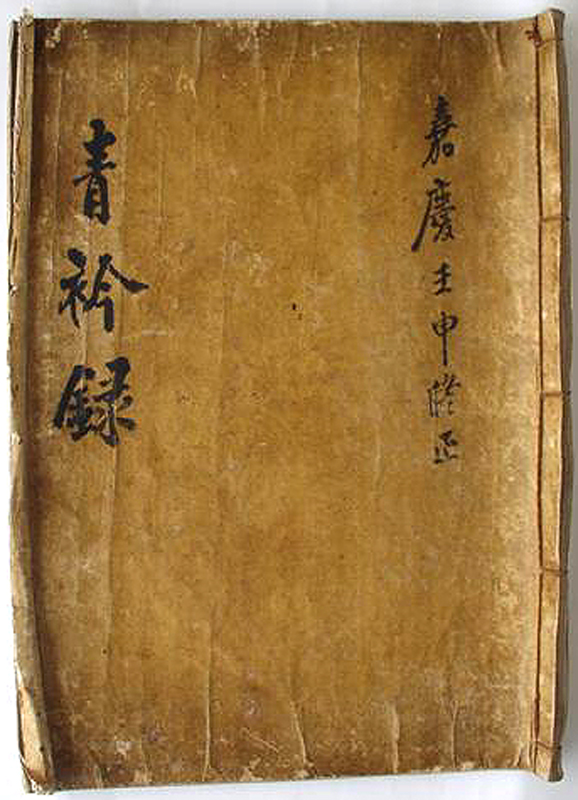 嘉慶壬申修正
青衿錄